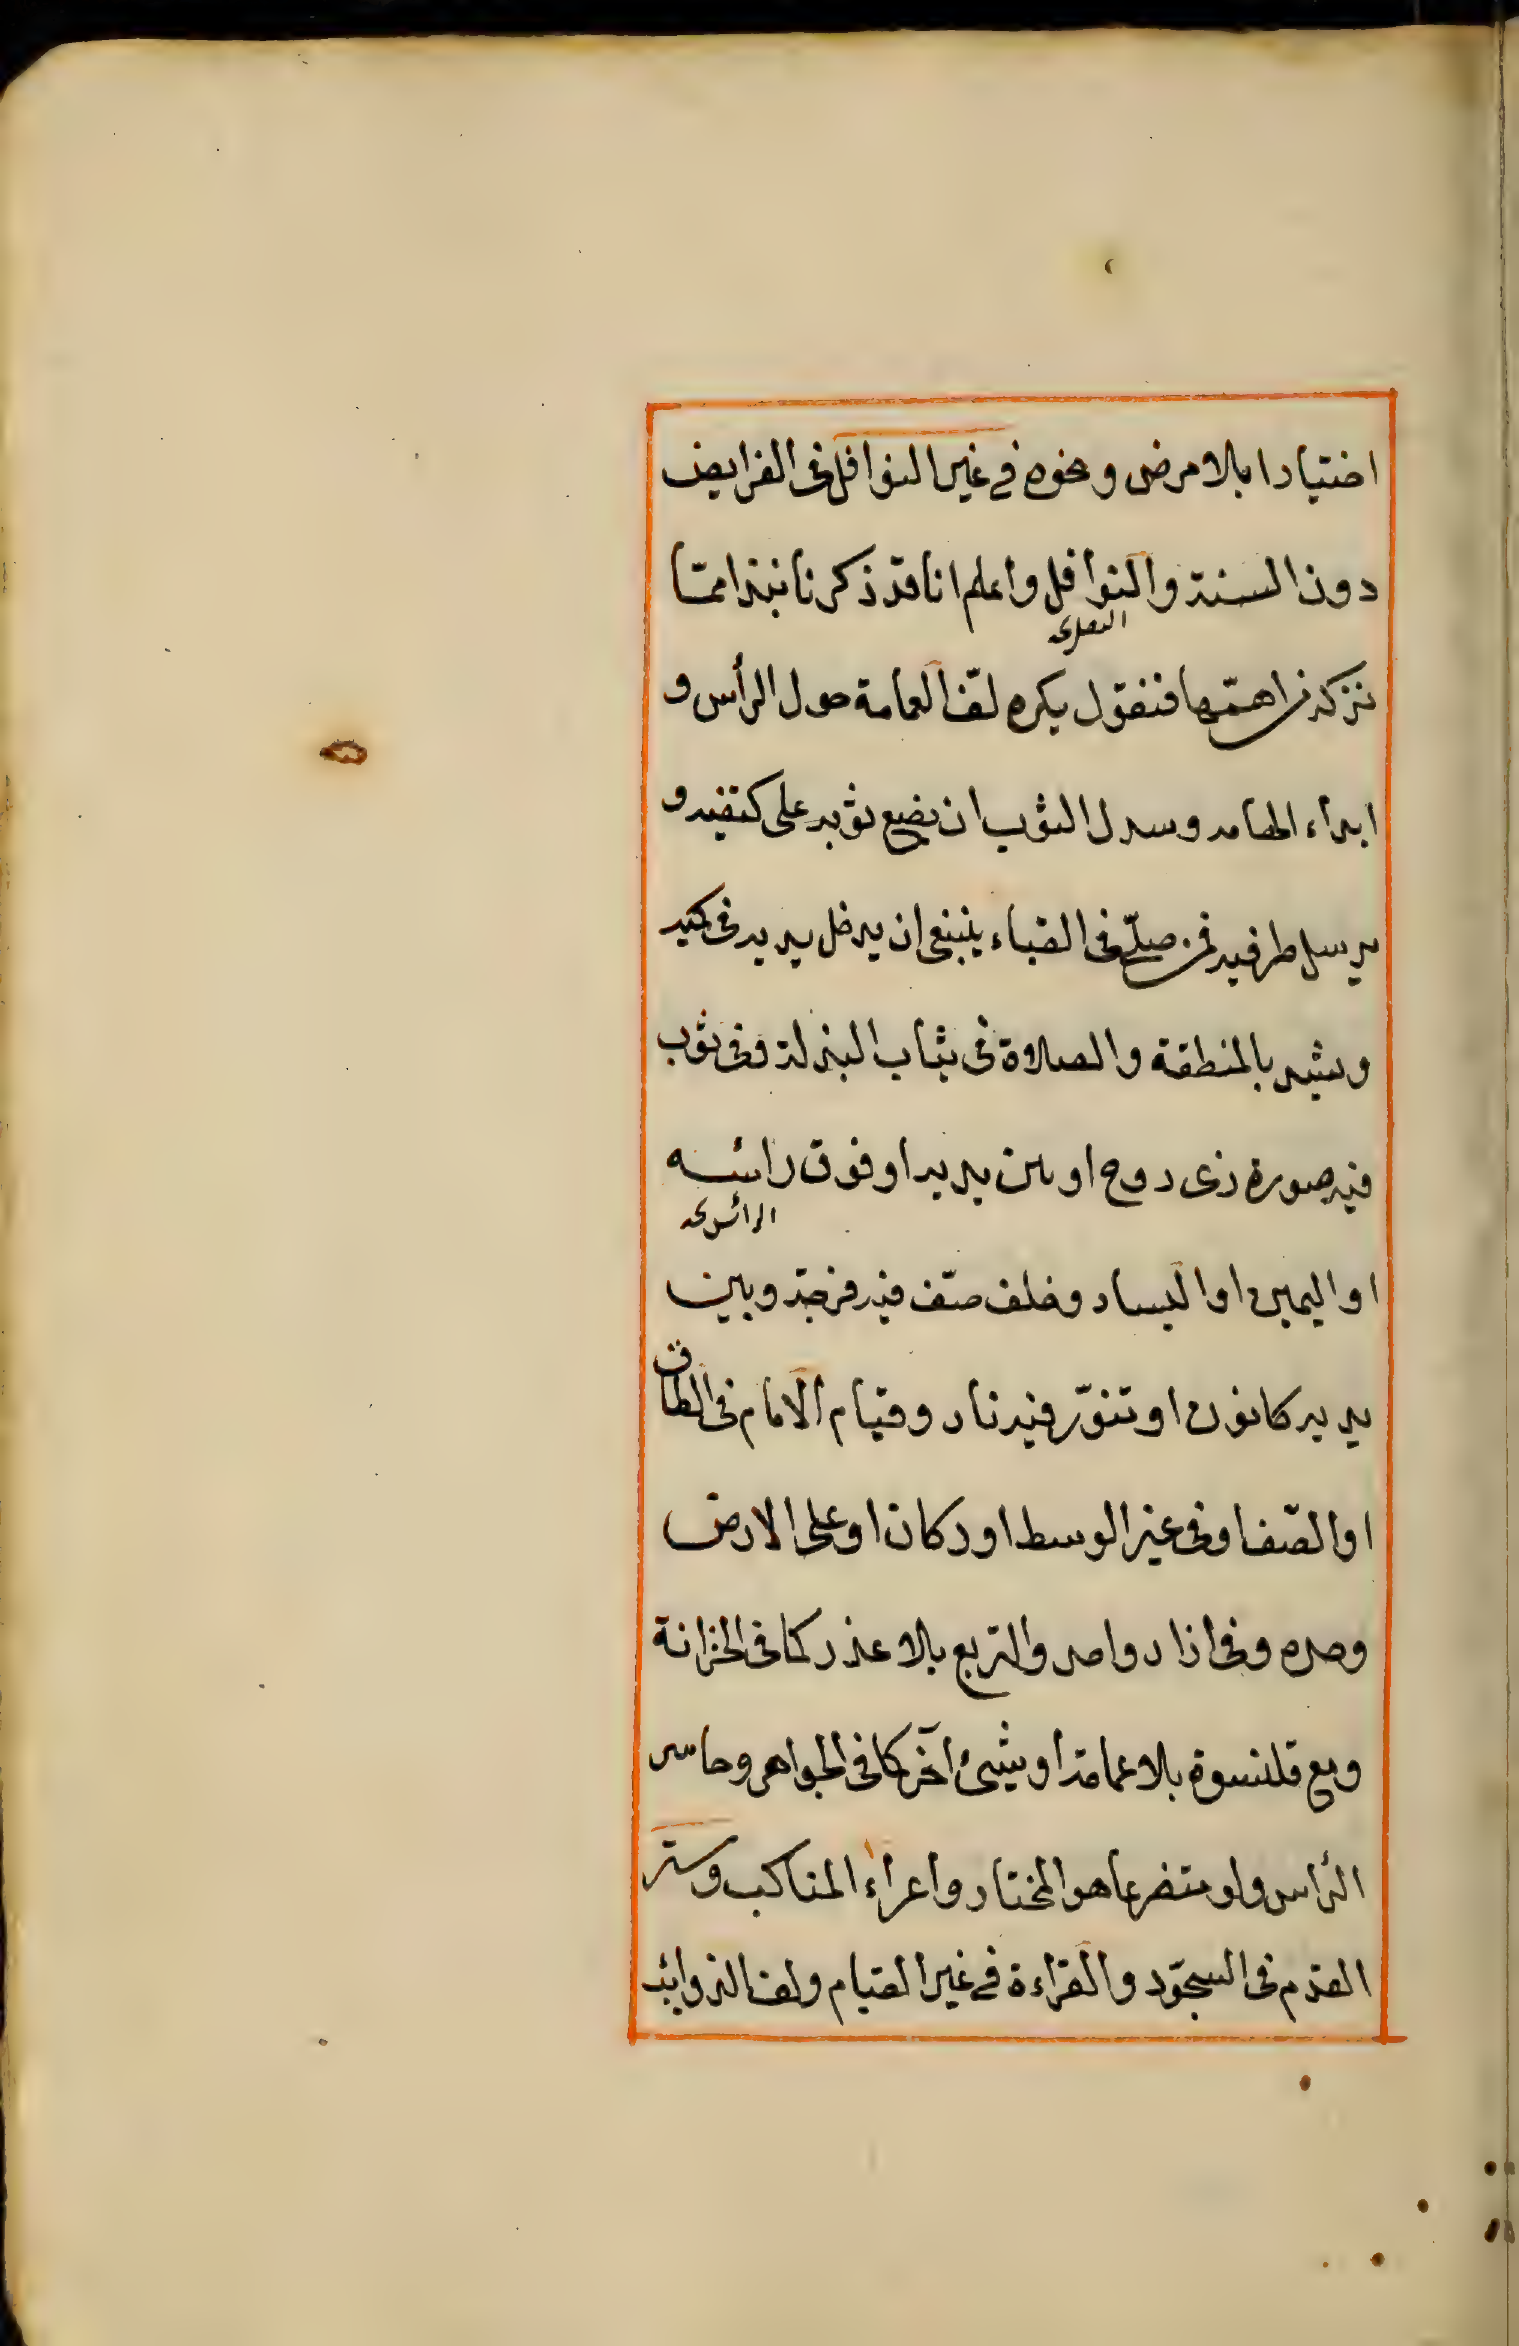 اختيارا بلا مرض ونحوه في غير النوافل في الفرايض
دون السنة والنوافل واعلم انا قد ذكرنا نبذا ممّا
نزكد اهمّها فنقول يكره لفّ العمامة حول الرأس و
ابداء الهامه وسدل الثوب ان يضع ثوبه على كتفيه و
يرسل طرفيه فمن صلّى في القباء ينبغى ان يدخل يديه فى كميه
ويشد بالمنطقة والصلاة فى ثياب البذلة وفى ثوب
فيه صورة ذى روح او بين يديه او فوق رائسه
او اليمين او اليسار وخلف صفّ فيه فرجة وبين
يديه كانون او تنوّر فيه نار وقيام الامام فى الطاق
او الصّف او فى غير الوسط او دكان او على الارض
وحده وفى ازار واحد والتربع بلا عذر كما فى الخزانة
ومع قلنسوة بلا عمامة او شيئ آخر كما فى الجواهر وحاسر
الرأس ولو متضرعا هو المختار واعراء المناكب وستر
القدم فى السجود والقراءة في غير القيام ولف الزوايد